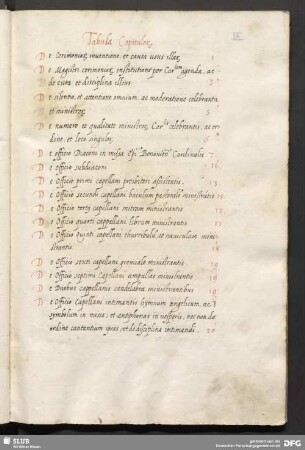 Tabula Capitulor.
De Cerimoniar. inuentione et earum usus illar. 1
De Magistri ceremoniar. institutione per Carlem agenda, ac
de cura et disciplina illius 2
De silentio, et attentione omnium, ac moderatione celebrantis
et ministror. 5
De numero et qualitate ministror. Carlis celebrantis, ac or-
dine et loco singulor. 6
De officio Diaconi in missa Epi Benauetis Cardinalis 7
De Officio subdiaconi
De Officio primi capellani presbiteri assistentis
De Officio secundi capellani baculum pastoralem ministrantis
De Officio tertij capellani mitram ministrantis 13
De Officio quarti cappellani librum ministrantis
De Officio Quinti capellani thurribulum et nauiculam mini-
strantis
De Officio sexti capellani gremiale ministrantis
De Officio septimi Capellani ampullas ministrantis
De Duobus cappellanis candelabra ministrantibus
De Officio Capellani intimantis hymnum Angelicum, ac
symbolum in missa, et antiphonas in vesperis, nec non de
ordine cantantium ipsas, et de disciplina intimandi. 20
SLUB
Wir führen Wissen.
gefördert von der
Deutschen Forschungsgemeinschaft
DFG